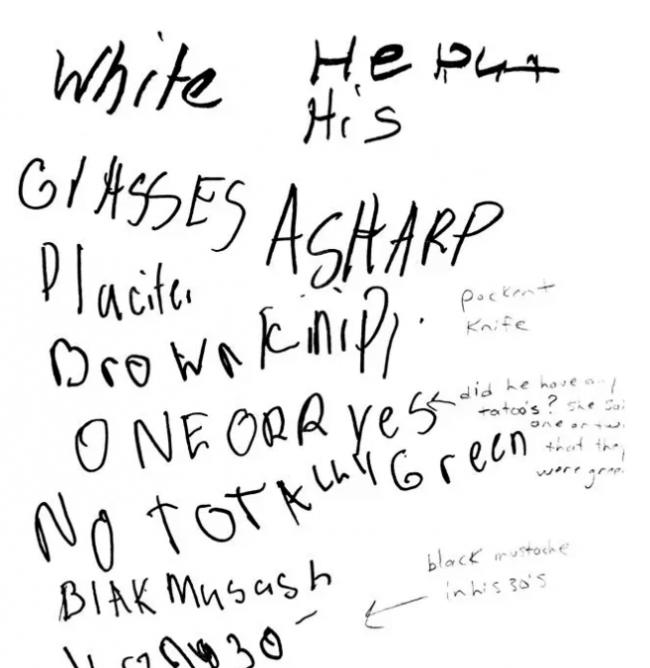 White He Put
His
GlASSES A SHARP
Placite,
Brown Knipj.
pockent
Knife
ONE ORR yes
did he have any
tatoo's? She sai
one or tw
that they
were gree
NO TOTAlly Green
BlAK Musash
black mustache
in his 30's
30